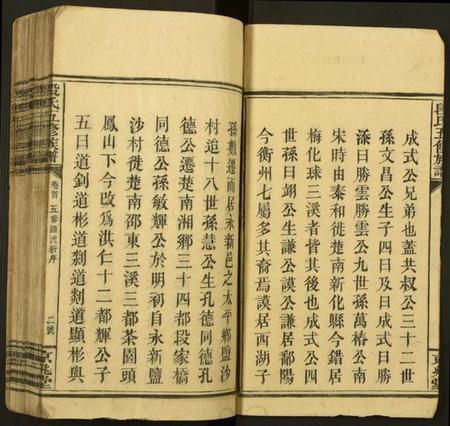 段氏五修族譜
成式公兄弟也蓋共叔公三十二世
孫文昌公生子四曰及曰成式曰勝
添曰勝雲勝雲公九世孫萬椿公南
宋時由泰和徙楚南新化縣今錯居
梅化球三溪者皆其後也成式公四
世孫曰翊公生謙公謨公謙居鄱陽
今衡州七屬多其裔焉謨居西湖子
孫數遷而居永新邑之太平鄉鹽沙
村迨十八世孫慧公生孔德同德孔
德公遷楚南湘鄉三十四都段家橋
同德公孫敏輝公於明初自永新鹽
沙村徙楚南邵東三溪三都茶園頭
鳳山下今改爲洪仁十二都輝公子
五曰道釗道彬道剡道顯彬與
段氏五修族譜
卷首
五修源流新序
二號
京兆堂